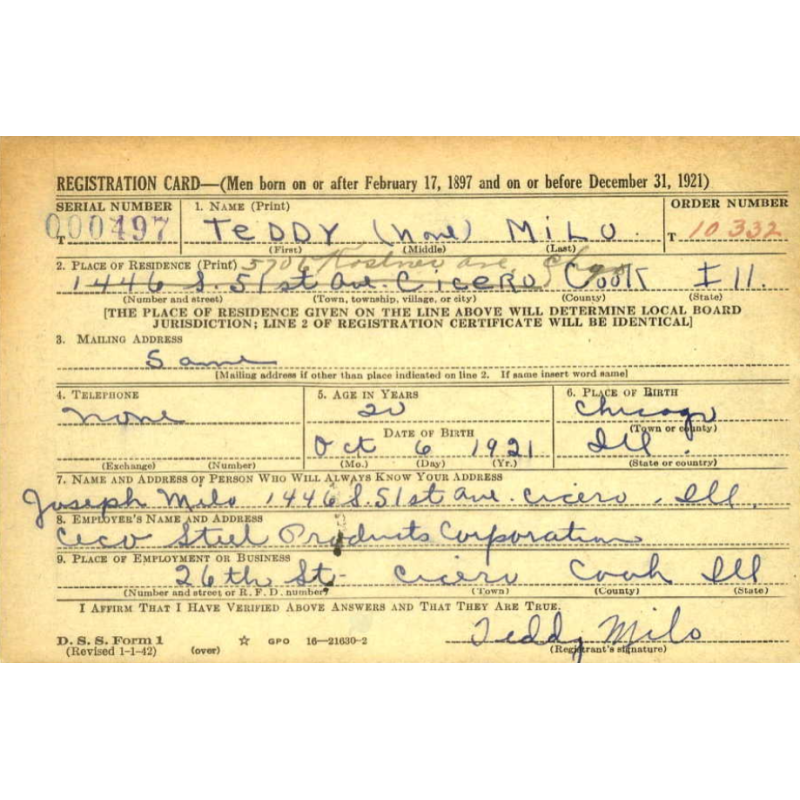 REGISTRATION CARD—(Men born on or after February 17, 1897 and on or before December 31, 1921)
SERIAL NUMBER 1. NAME (Print) ORDER NUMBER
T 000497 TEDDY (None) MILO T 10332
(First) (Middle) (Last)
2. PLACE OF RESIDENCE (Print) 5706 Kostner ave Chgo
1446 S. 51st Ave. CICERO Cook Ill.
(Number and street) (Town, township, village, or city) (County) (State)
[THE PLACE OF RESIDENCE GIVEN ON THE LINE ABOVE WILL DETERMINE LOCAL BOARD
JURISDICTION; LINE 2 OF REGISTRATION CERTIFICATE WILL BE IDENTICAL]
3. MAILING ADDRESS
Same
[Mailing address if other than place indicated on line 2. If same insert word same]
4. TELEPHONE 5. AGE IN YEARS 6. PLACE OF BIRTH
none 20 Chicago
DATE OF BIRTH (Town or county)
Oct 6 1921 Ill.
(Exchange) (Number) (Mo.) (Day) (Yr.) (State or country)
7. NAME AND ADDRESS OF PERSON WHO WILL ALWAYS KNOW YOUR ADDRESS
Joseph Milo 1446 S. 51st Ave. Cicero, Ill.
8. EMPLOYER'S NAME AND ADDRESS
Ceco Steel Products Corporation
9. PLACE OF EMPLOYMENT OR BUSINESS
26th St- Cicero Cook Ill
(Number and street or R. F. D. number) (Town) (County) (State)
I AFFIRM THAT I HAVE VERIFIED ABOVE ANSWERS AND THAT THEY ARE TRUE.
D. S. S. Form 1
(Revised 1-1-42) (over) ☆ GPO 16—21630-2 Teddy Milo
(Registrant's signature)